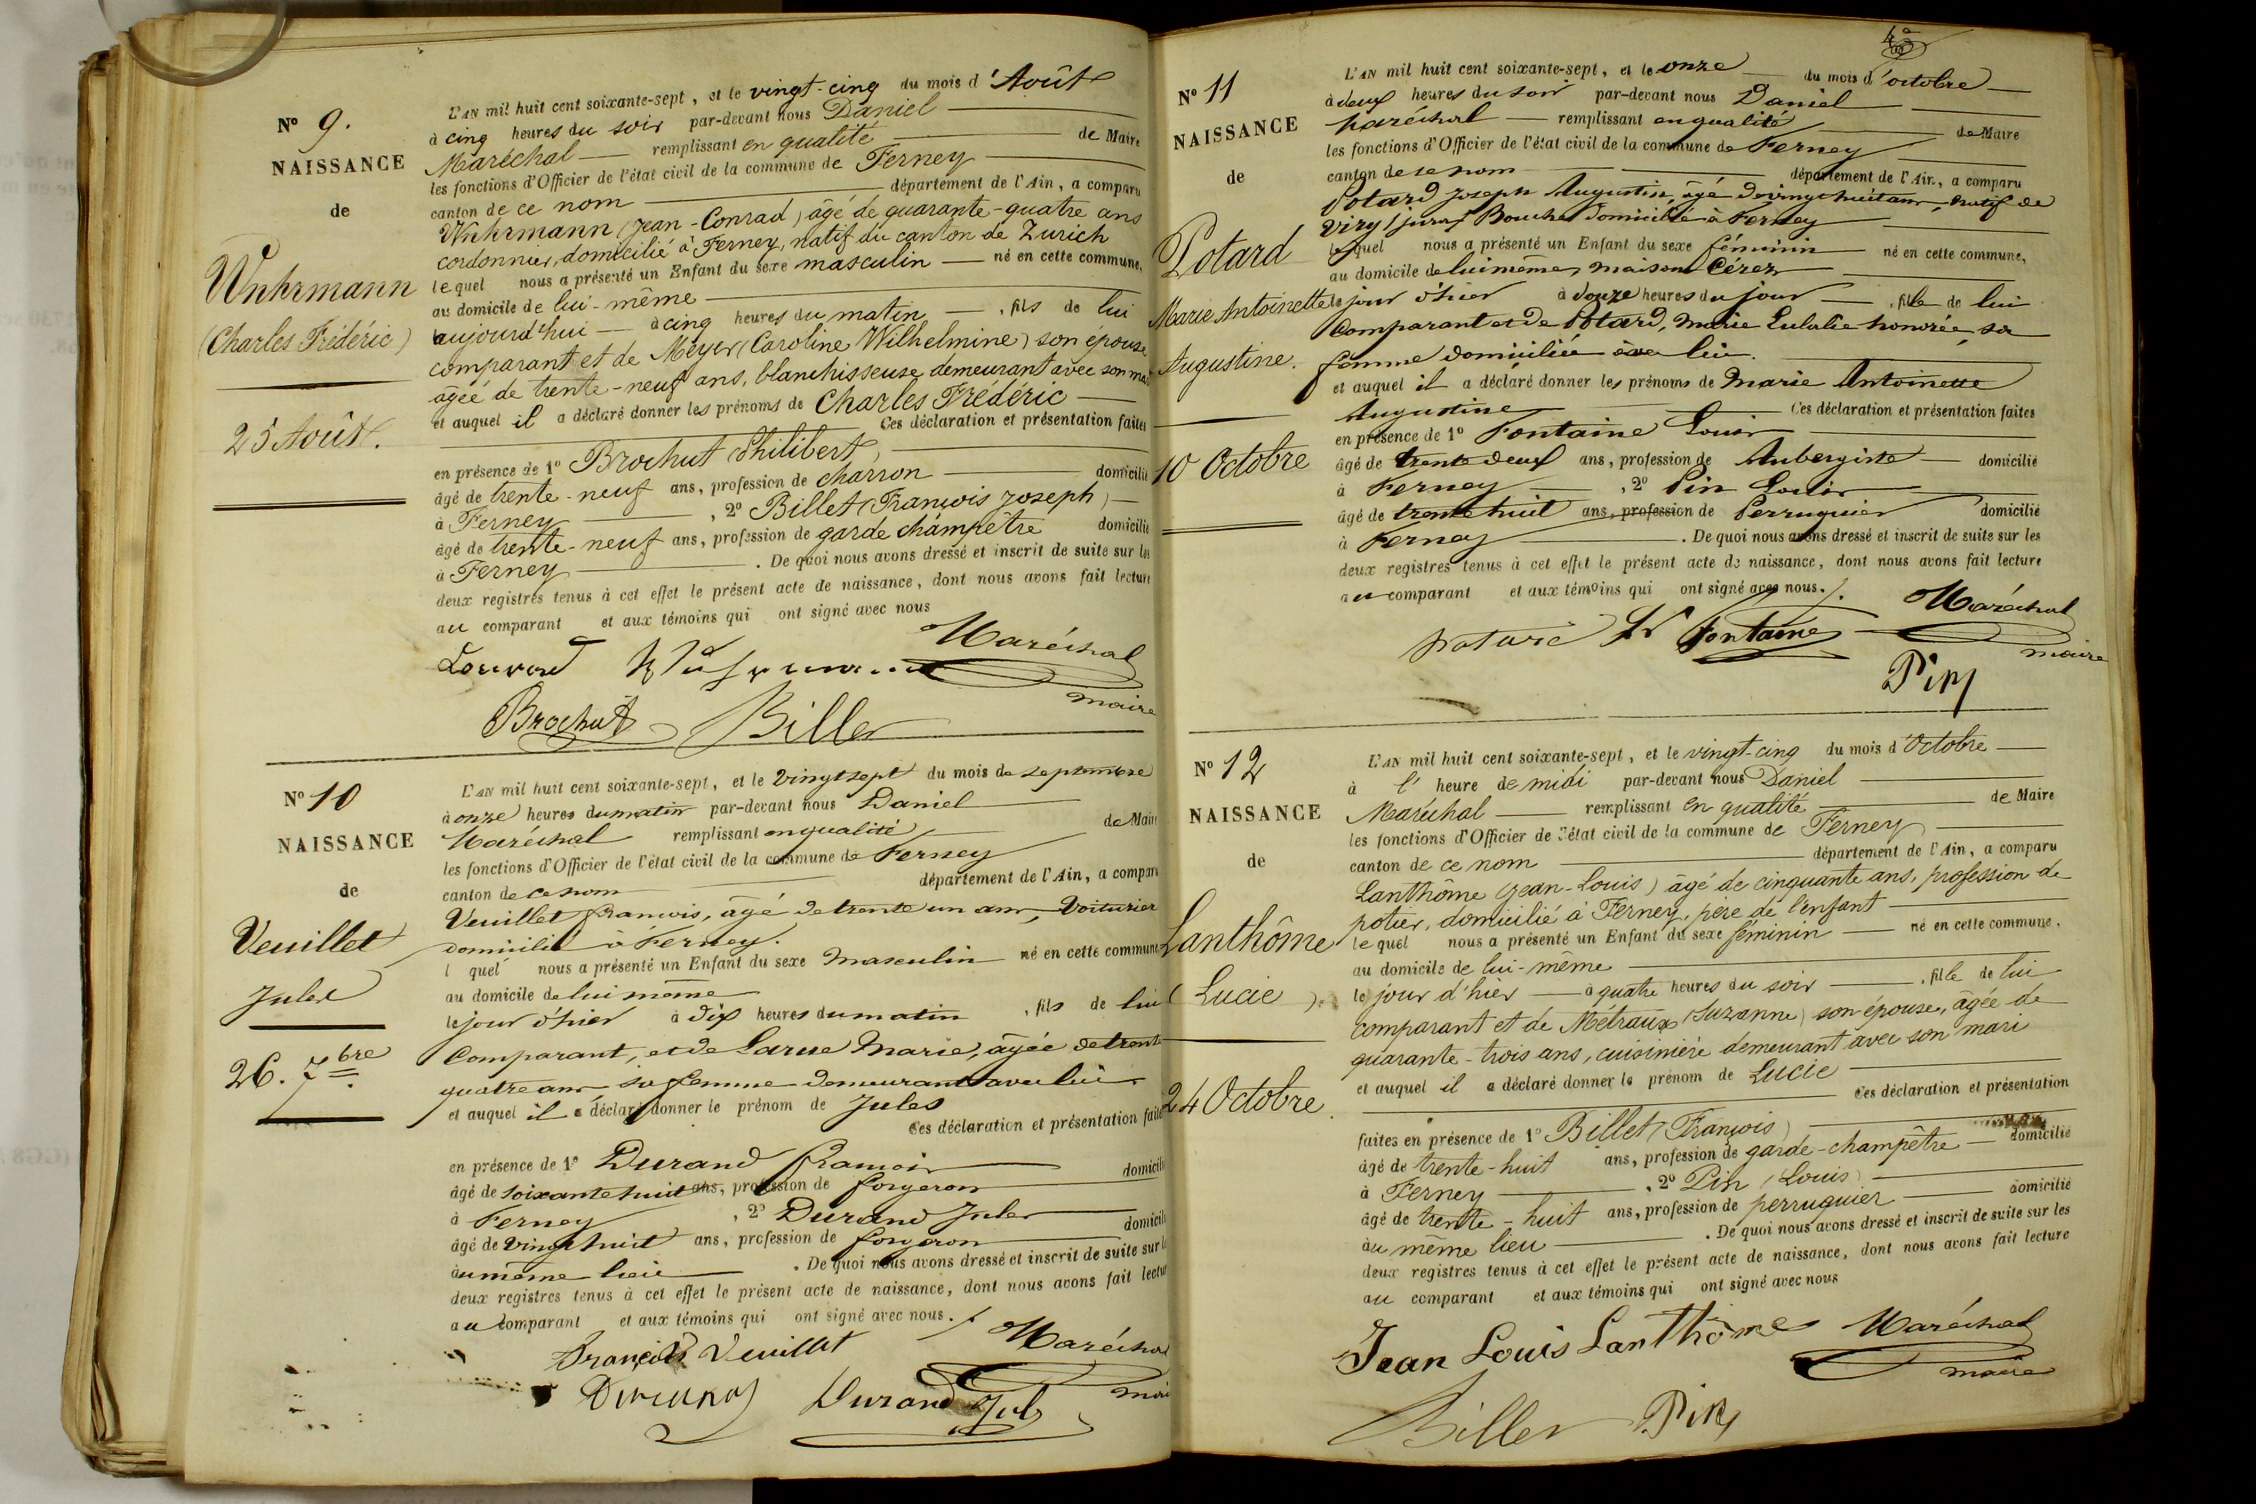 Nº 9.
NAISSANCE
de
Wuhrmann
(Charles Frédéric)
25 Août.
L'AN mil huit cent soixante-sept, et le vingt-cinq du mois d'Août
à cinq heures du soir par-devant nous Daniel
Maréchal remplissant en qualité de Maire
les fonctions d'Officier de l'état civil de la commune de Ferney
canton de ce nom département de l'Ain, a comparu
Wuhrmann (Jean-Conrad) âgé de quarante-quatre ans
cordonnier, domicilié à Ferney, natif du canton de Zurich
lequel nous a présenté un Enfant du sexe masculin né en cette commune,
au domicile de lui-même
aujourd'hui à cinq heures du matin, fils de lui
comparant et de Meyer (Caroline Wilhelmine) son épouse
âgée de trente-neuf ans, blanchisseuse demeurant avec son mari
et auquel il a déclaré donner les prénoms de Charles Frédéric
Ces déclaration et présentation faites
en présence de 1º Brochut Philibert,
âgé de trente-neuf ans, profession de charron domicilié
à Ferney, 2º Billet (François Joseph)
âgé de trente-neuf ans, profession de garde champêtre domicilié
à Ferney. De quoi nous avons dressé et inscrit de suite sur les
deux registres tenus à cet effet le présent acte de naissance, dont nous avons fait lecture
au comparant et aux témoins qui ont signé avec nous
Maréchal
maire
Brochut Billet
Nº 10
NAISSANCE
de
Veuillet
Jules
26. 7bre
L'AN mil huit cent soixante-sept, et le vingt sept du mois de septembre
à onze heures du matin par-devant nous Daniel
Maréchal remplissant en qualité de Maire
les fonctions d'Officier de l'état civil de la commune de Ferney
canton de ce nom département de l'Ain, a comparu
Veuillet françois, âgé de trente un ans, Voiturier
domicilié à Ferney.
l quel nous a présenté un Enfant du sexe Masculin né en cette commune
au domicile de lui même
le jour d'hier à dix heures du matin, fils de lui
Comparant, et de Larue Marie, âgée de trente
quatre ans sa femme demeurant avec lui
et auquel il a déclaré donner le prénom de Jules
Ces déclaration et présentation faites
en présence de 1º Durand françois
âgé de soixante huit ans, profession de forgeron domicilié
à Ferney, 2º Durand Jules
âgé de vingt huit ans, profession de forgeron domicilié
au même lieu. De quoi nous avons dressé et inscrit de suite sur les
deux registres tenus à cet effet le présent acte de naissance, dont nous avons fait lecture
au comparant et aux témoins qui ont signé avec nous.
François Veuillet Maréchal
maire
Durand Durand Jul
Nº 11
NAISSANCE
de
Potard
Marie Antoinette
Augustine.
10 Octobre
L'AN mil huit cent soixante-sept, et le onze du mois d'octobre
à deux heures du soir par-devant nous Daniel
Maréchal remplissant en qualité de Maire
les fonctions d'Officier de l'état civil de la commune de Ferney
canton de ce nom département de l'Ain, a comparu
Potard Joseph Augustin, âgé de vingt huit ans, natif de
Viry (jura) Boucher domicilié à Ferney
lequel nous a présenté un Enfant du sexe féminin né en cette commune,
au domicile de lui même, maison Cérez
le jour d'hier à douze heures du jour, fille de lui
Comparant et de Potard, Marie Eulalie honorée, sa
femme domiciliée avec lui.
et auquel il a déclaré donner les prénoms de Marie Antoinette
Augustine Ces déclaration et présentation faites
en présence de 1º Fontaine Louis
âgé de trente deux ans, profession de Aubergiste domicilié
à Ferney, 2º Pin Louis
âgé de trente huit ans, profession de Perruquier domicilié
à Ferney. De quoi nous avons dressé et inscrit de suite sur les
deux registres tenus à cet effet le présent acte de naissance, dont nous avons fait lecture
au comparant et aux témoins qui ont signé avec nous.
Potard Fontaine Maréchal
maire
Pin
Nº 12
NAISSANCE
de
Lanthôme
(Lucie).
24 Octobre.
L'AN mil huit cent soixante-sept, et le vingt-cinq du mois d'Octobre
à l'heure de midi par-devant nous Daniel
Maréchal remplissant en qualité de Maire
les fonctions d'Officier de l'état civil de la commune de Ferney
canton de ce nom département de l'Ain, a comparu
Lanthôme (Jean-Louis) âgé de cinquante ans, profession de
potier, domicilié à Ferney, père de l'enfant
lequel nous a présenté un Enfant du sexe féminin né en cette commune,
au domicile de lui-même
le jour d'hier à quatre heures du soir, fille de lui
comparant et de Métraux (Suzanne) son épouse, âgée de
quarante-trois ans, cuisinière demeurant avec son mari
et auquel il a déclaré donner le prénom de Lucie
Ces déclaration et présentation
faites en présence de 1º Billet (François)
âgé de trente-huit ans, profession de garde-champêtre domicilié
à Ferney, 2º Pin (Louis)
âgé de trente-huit ans, profession de perruquier domicilié
au même lieu. De quoi nous avons dressé et inscrit de suite sur les
deux registres tenus à cet effet le présent acte de naissance, dont nous avons fait lecture
au comparant et aux témoins qui ont signé avec nous
Jean Louis Lanthôme Maréchal
maire
Billet Pin